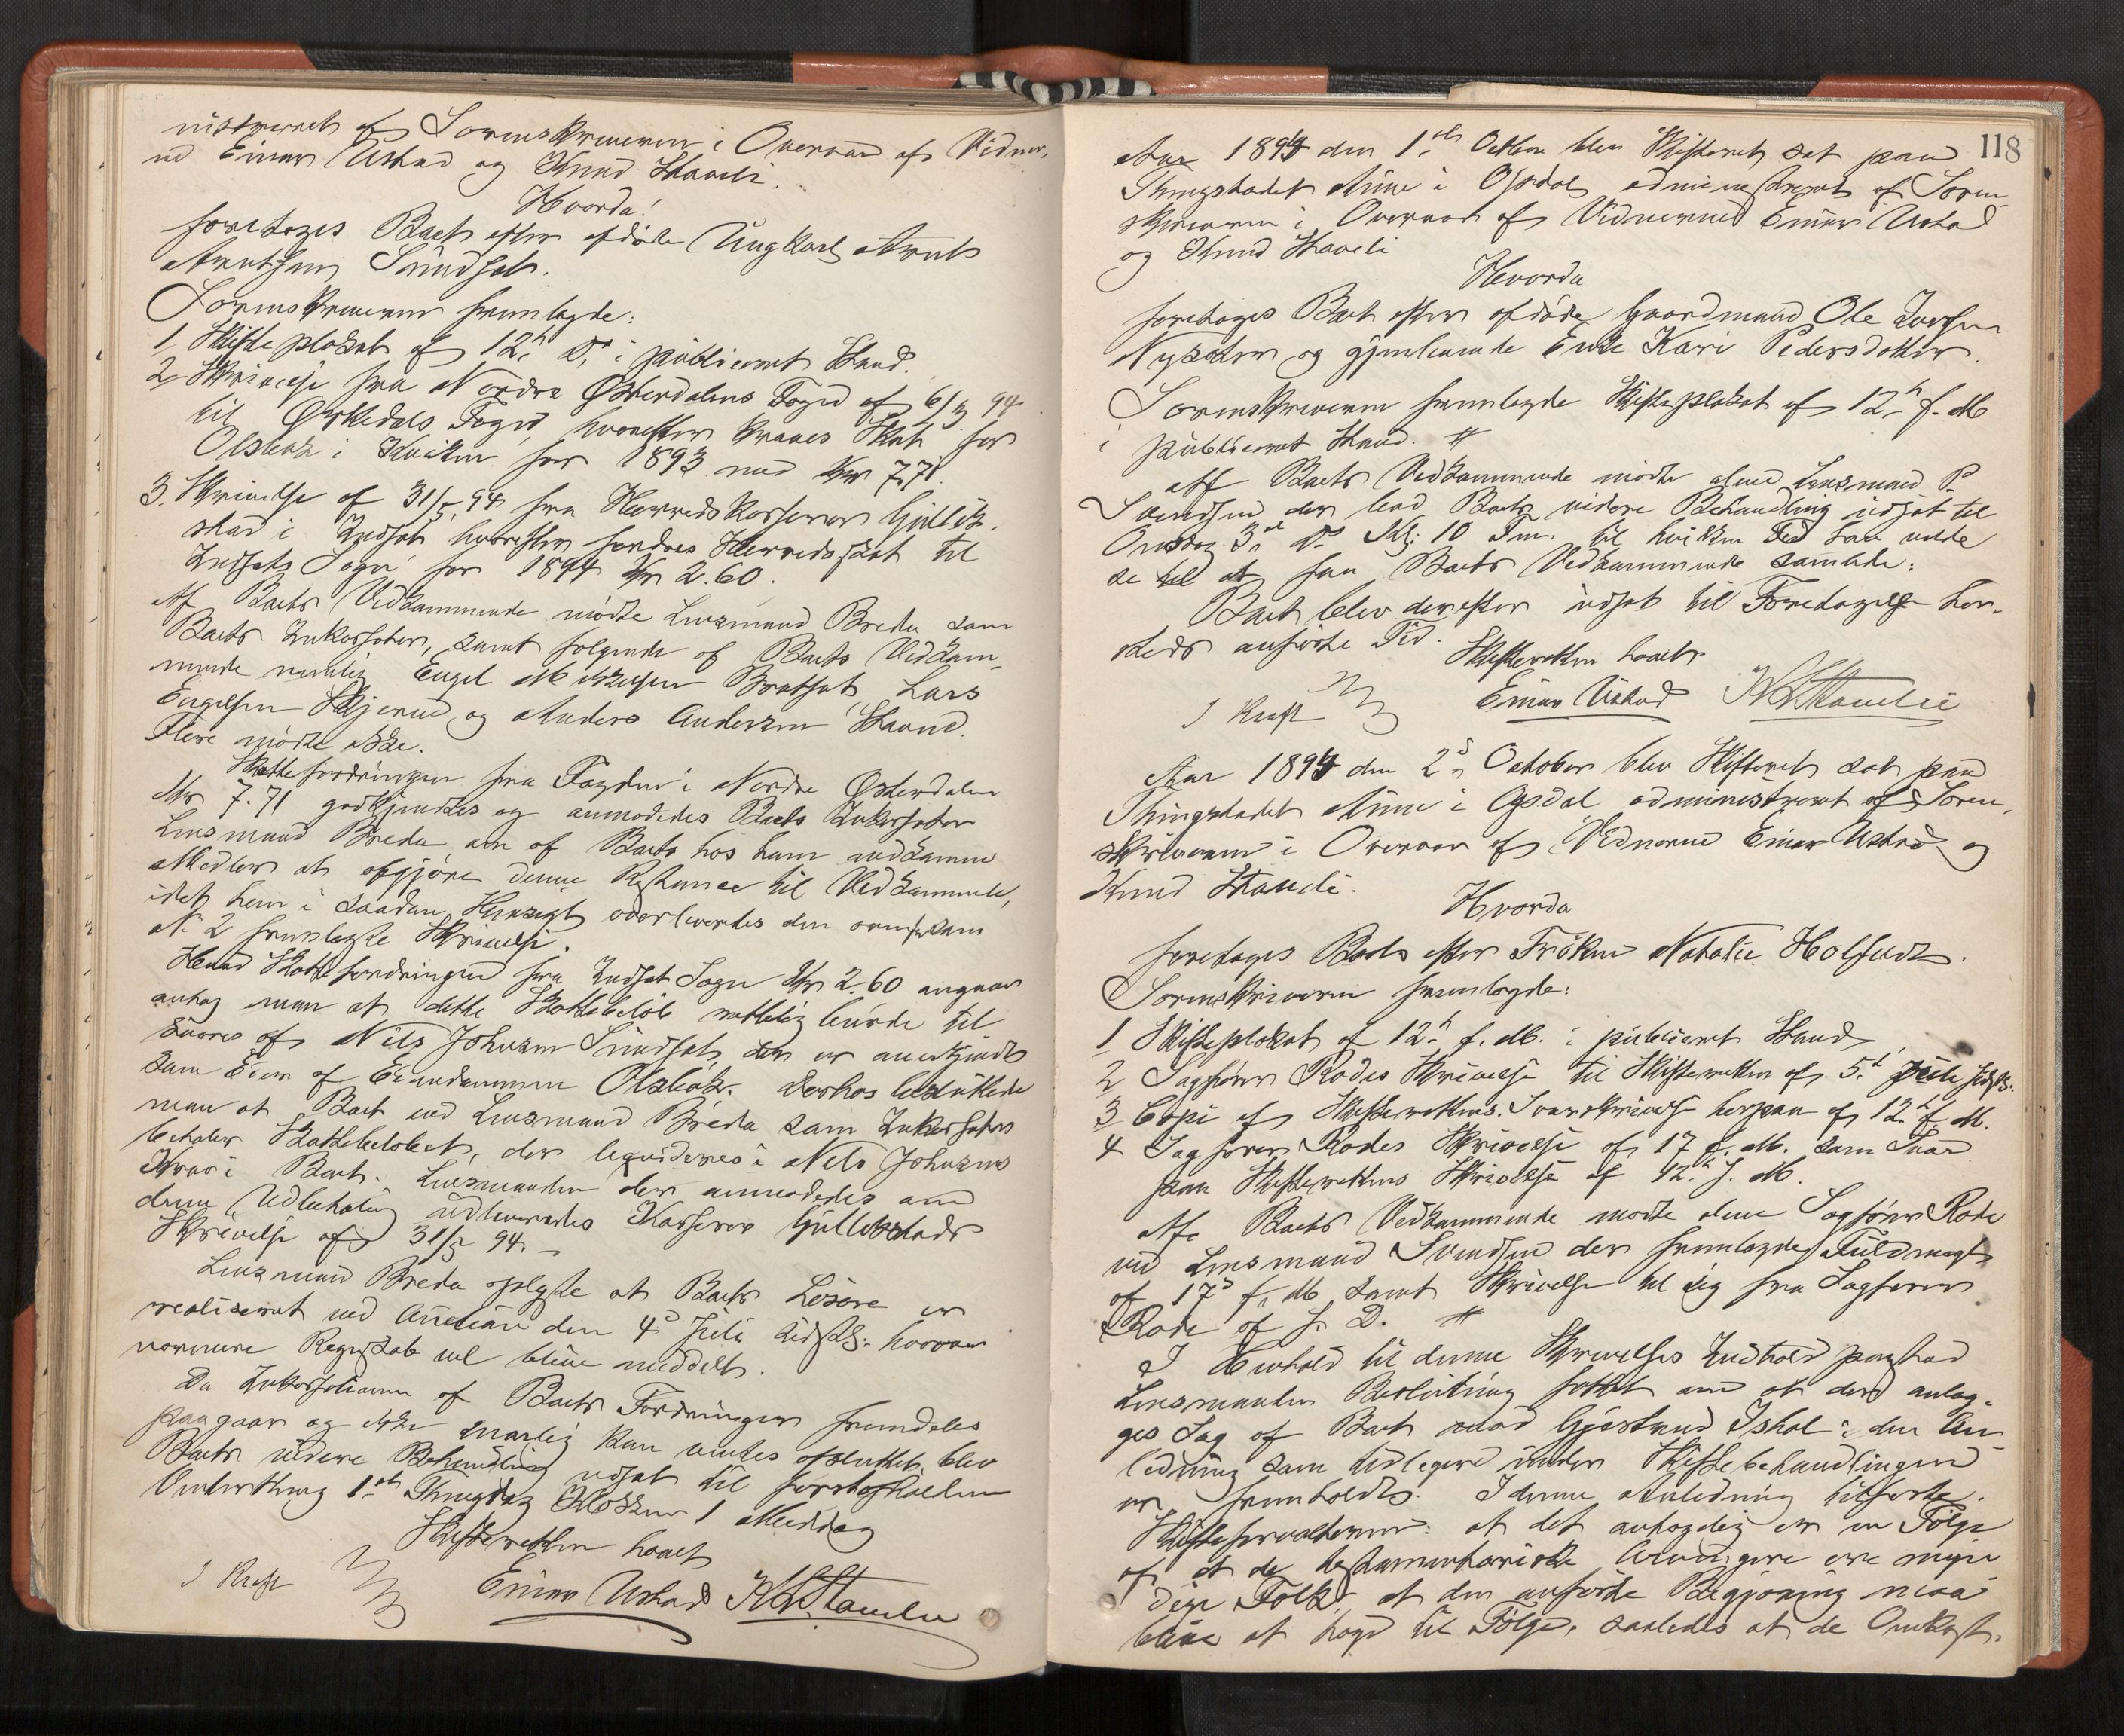 nistreret af Sorenskriveren i Overvær af Vidner,
ne Einar Ustad og Knud Stavli.
Hvorda!
foretoges Boet efter afdøde Ungkarl Arnt
Arntsen Sundset.
Sorenskriveren fremlagde:
1 Skifteplakat af 12te d. i publiceret Stand.
2 Skrivelse fra Nordre Østerdalens Foged af 6/3 94
til Ørkedals Foged, hvorefter kræves Skat for
i Kvikne for 1893 med Kr 7.71.
3. Skrivelse af 31/5 94 fra Herredskasserer
stad i Indset hvorefter fordres Herredsskat til
Indsets Sogn for 1894 Kr 2.60.
Af Boets Vedkommende mødte Lensmand Breda som
Boets Inkassator, samt følgende af Boets Vedkom-
mende nemlig Engel Mikkelsen Bratset, Lars
Engelsen Skjerve og Anders Andersen Stavne.
Flere mødte ikke.
Skattefordringen fra Fogden i Nordre Østerdalen
Kr 7.71 godkjendtes og anmodedes Boets Inkassator
Lensmand Breda om af Boets hos ham indkomne
Midler at opgjøre denne Restance til Vedkommende,
idet ham i saadan Hensigt overleveredes den som
No 2 fremlagte Skrivelse.
Hvad Skattefordringen fra Indset Sogn Kr 2.60 angaar
antog man at dette Skattebeløb rettelig burde til
svares af Nils Johnsen Sundset, der er anerkjendt
som Eier af Eiendommen. Derhos besluttede
man at Boet ved Lensmand Breda som Inkassator
betaler Skattebeløbet, der liquideres i Nils Johnsens
Krav i Boet. Lensmanden der anmodedes om
denne Udbetaling udleveredes Kasserer
Skrivelse af 31/5 94. –
Lensmand Breda oplyste at Boets Løsøre er
realiseret ved Auction den 4de Juli sidstl: hvorom
nærmere Regnskab vil blive meddelt.
Da Inkassationen af Boets Fordringer fremdeles
paagaar og ikke snarlig kan ventes opsluttet, blev
Boets videre Behandling udsat til førstafholdende
Vinterthing 1ste Thingdag Klokken 1 Middag
Skifteretten hævet
J Kraft Einar Ustad K L Stavlie
118
Aar 1894 den 1ste October blev Skifteret sat paa
Thingstedet Aune i Opdal administreret af Soren-
skriveren i Overvær af Vidnerne Einar Ustad
og Knud Stavli
Hvorda
foretoges Boet efter afdøde Gaardmand Ole
og gjenlevende Enke Kari Pedersdatter.
Sorenskriveren fremlagde Skifteplakat af 12te f. M
i publiceret Stand. #
Af Boets Vedkommende mødte alene Lensmand P.
Svendsen der bad Boets videre Behandling udsat til
Onsdag 3die ds Kl: 10 Fm. til hvilken Tid han vilde
se til at faa Boets Vedkommende samlede.
Boet blev derefter udsat til Foretagelse her-
steds anførte Tid.
Skifteretten hævet
J Kraft Einar Ustad K L Stavlie
Aar 1894 den 2den October blev Skifteret sat paa
Thingstedet Aune i Opdal administreret af Soren-
skriveren i Overvær af Vidnerne Einar Ustad og
Knud Stavli.
Hvorda
foretoges Boet efter Frøken Nathalie Holfeldt.
Sorenskriveren fremlagde:
1 Skifteplakat af 12te f. M. i publiceret Stand,
2 Sagfører Rodes Skrivelse til Skifteretten af 5te Juli sidstl:
3 Copi af Skifterettens Svarskrivelse herpaa af 12te f. M.
4 Sagfører Rodes Skrivelse af 17 f. M. som Svar
paa Skifterettens Skrivelse af 12te f. M.
Af Boets Vedkommende mødte alene Sagfører Rode
ved Lensmand Svendsen der fremlagde Fuldmagt
af 17de f. M samt Skrivelse til sig fra Sagfører
Rode af s. D. #
I Henhold til denne Skrivelses Indhold paastod
Lensmanden Beslutning fattet om at der anlæg-
ges Sag af Boet mod Gjæstmand Ishol i den An-
ledning som tidligere under Skiftebehandlingen
er fremholdt. I denne Anledning tilførte
Skifteforvalteren: at det antagelig er en Følge
af at de testamentariske Arvinger ere myn
dige Folk at den anførte Begjæring maa
blive at tage til Følge, saaledes at de Omkost-